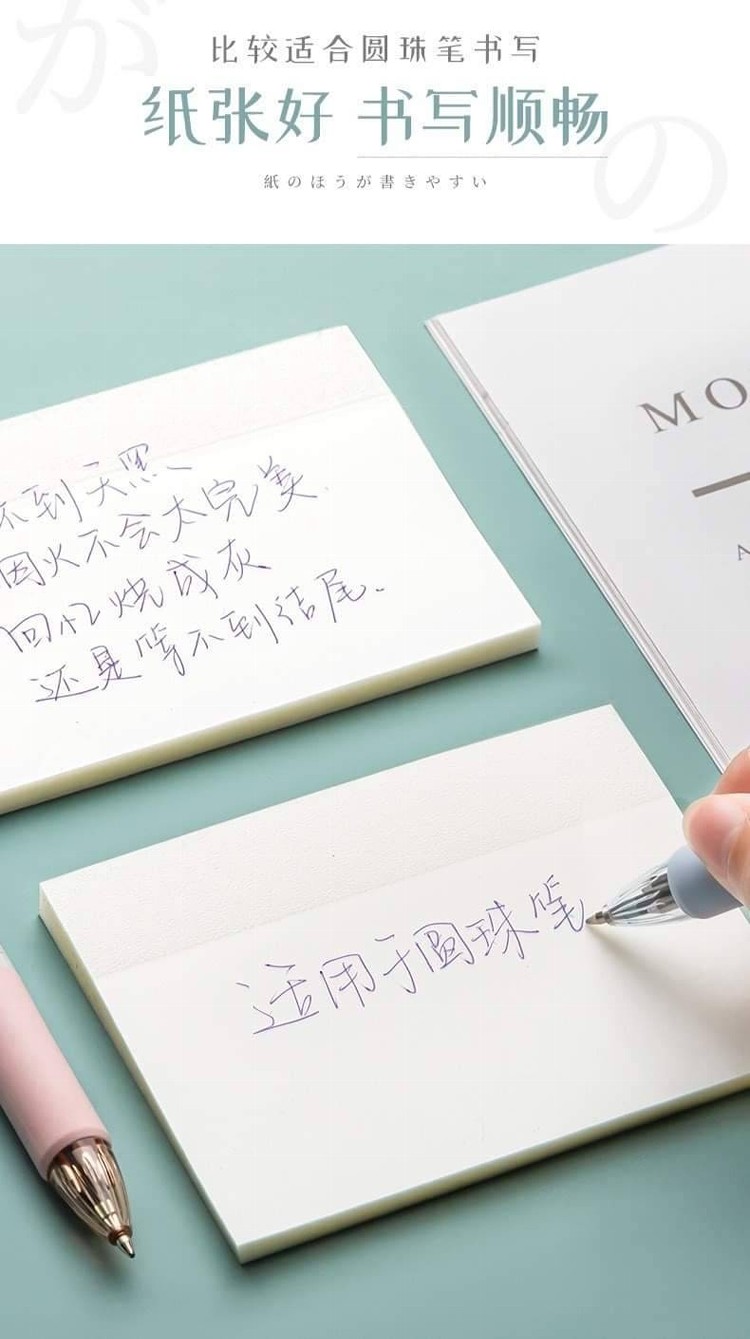 比较适合圆珠笔书写
纸张好 书写顺畅
紙のほうが書きやすい
が
の
不到天黑
因火不会太完美
回忆烧成灰
还是等不到结尾.
MO
A
适用于圆珠笔